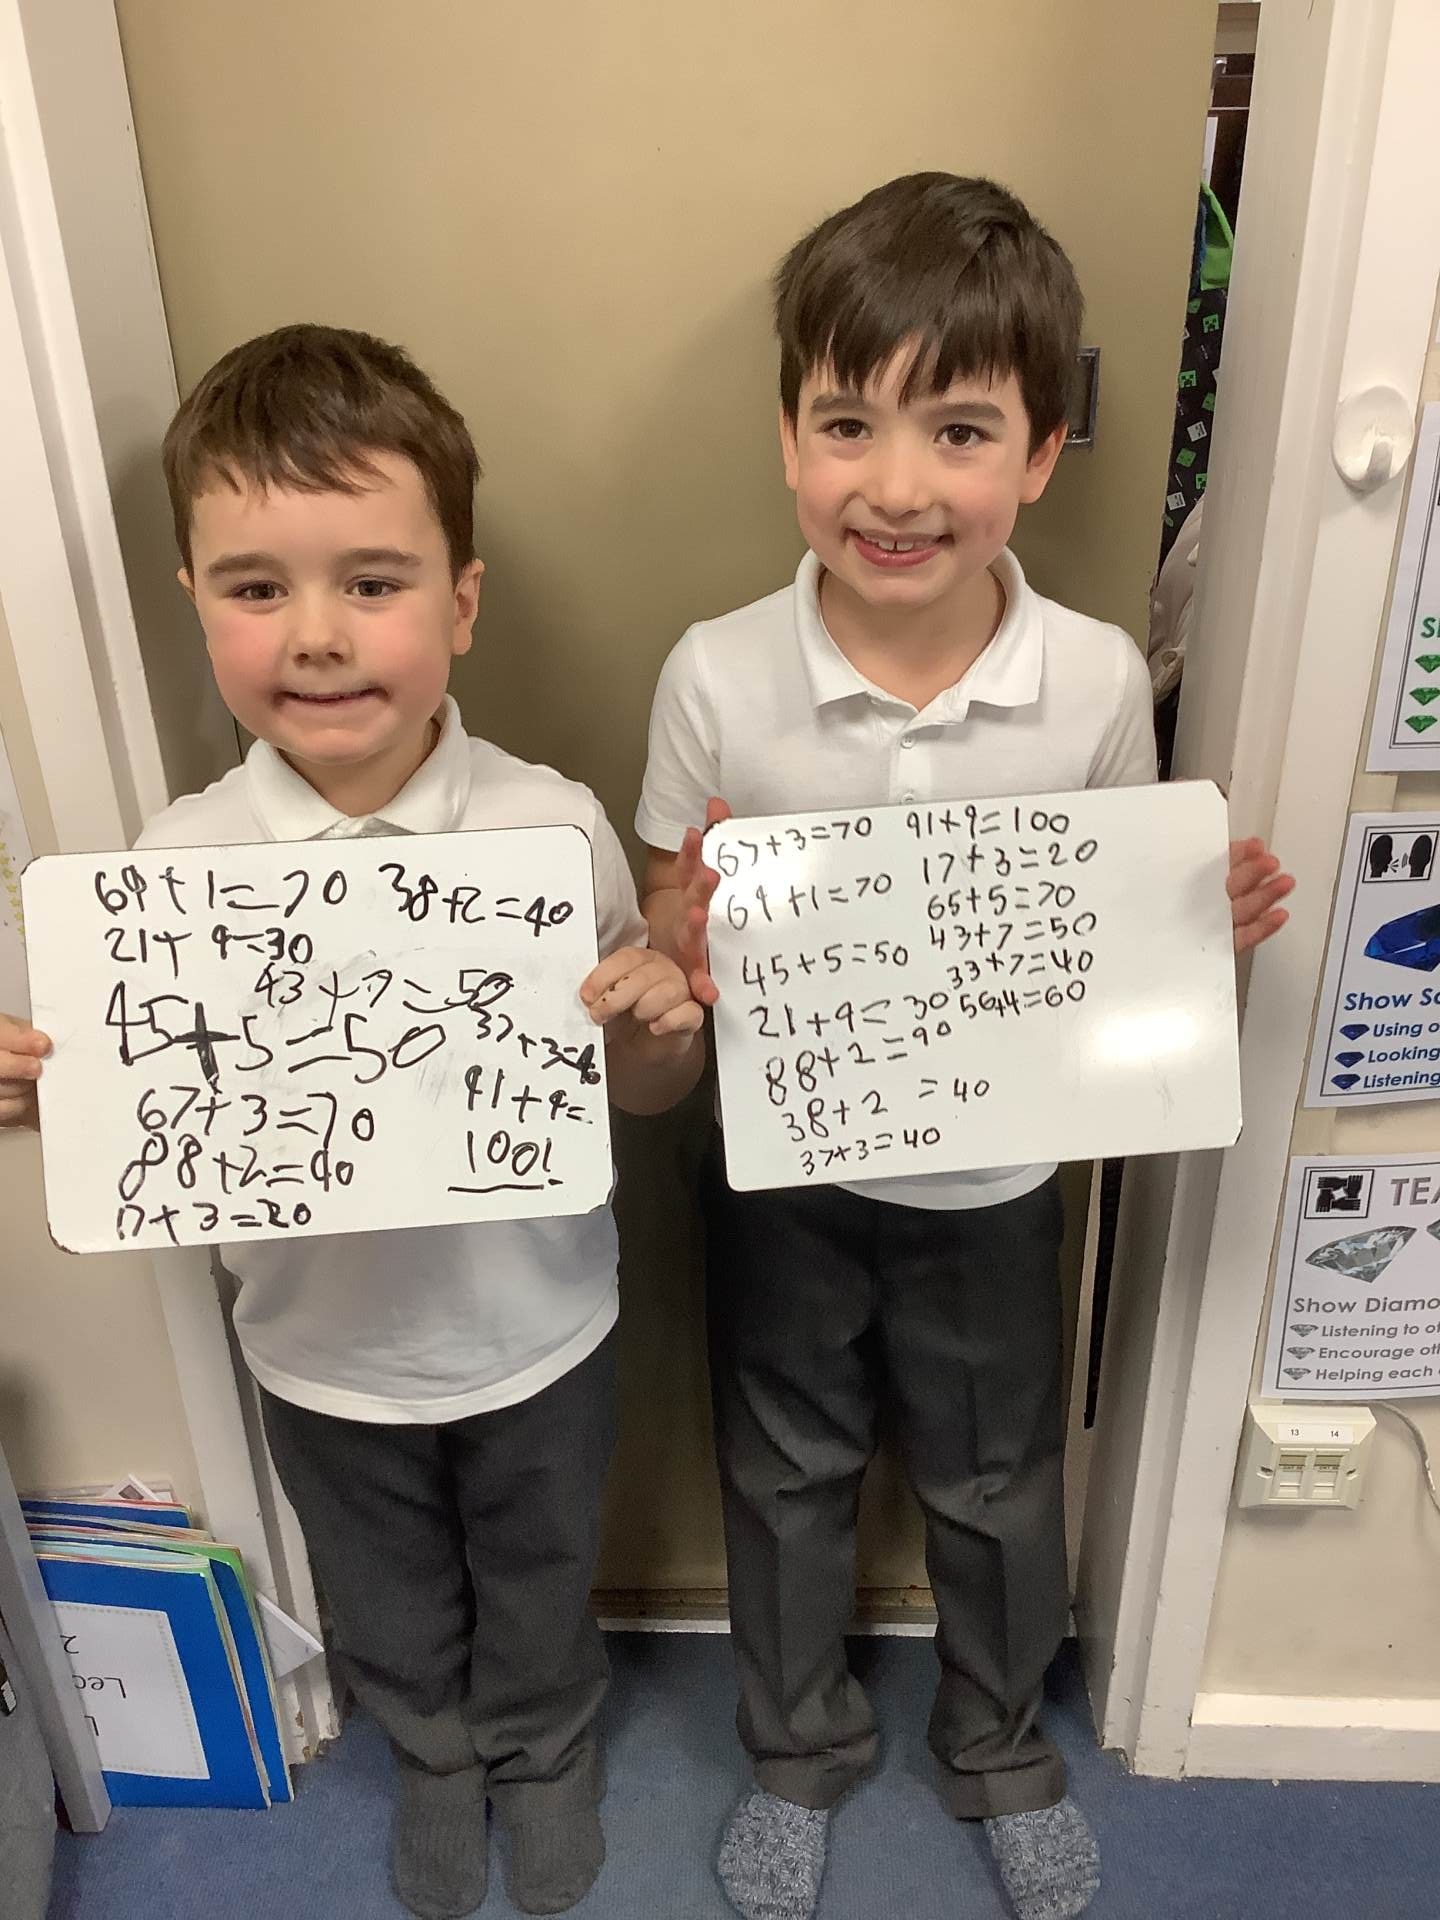 69+1=70
38+2=40
21+9=30
43+7=50
45+5=50
37+3=40
67+3=70
91+9=
100!
88+2=90
17+3=20
67+3=70
91+9=100
69+1=70
17+3=20
65+5=70
45+5=50
43+7=50
33+7=40
21+9=30
56+4=60
88+2=90
38+2 =40
37+3=40
Show
Using
Looking
Listening
Show
Listening to
Encourage
Helping each
13 14
2